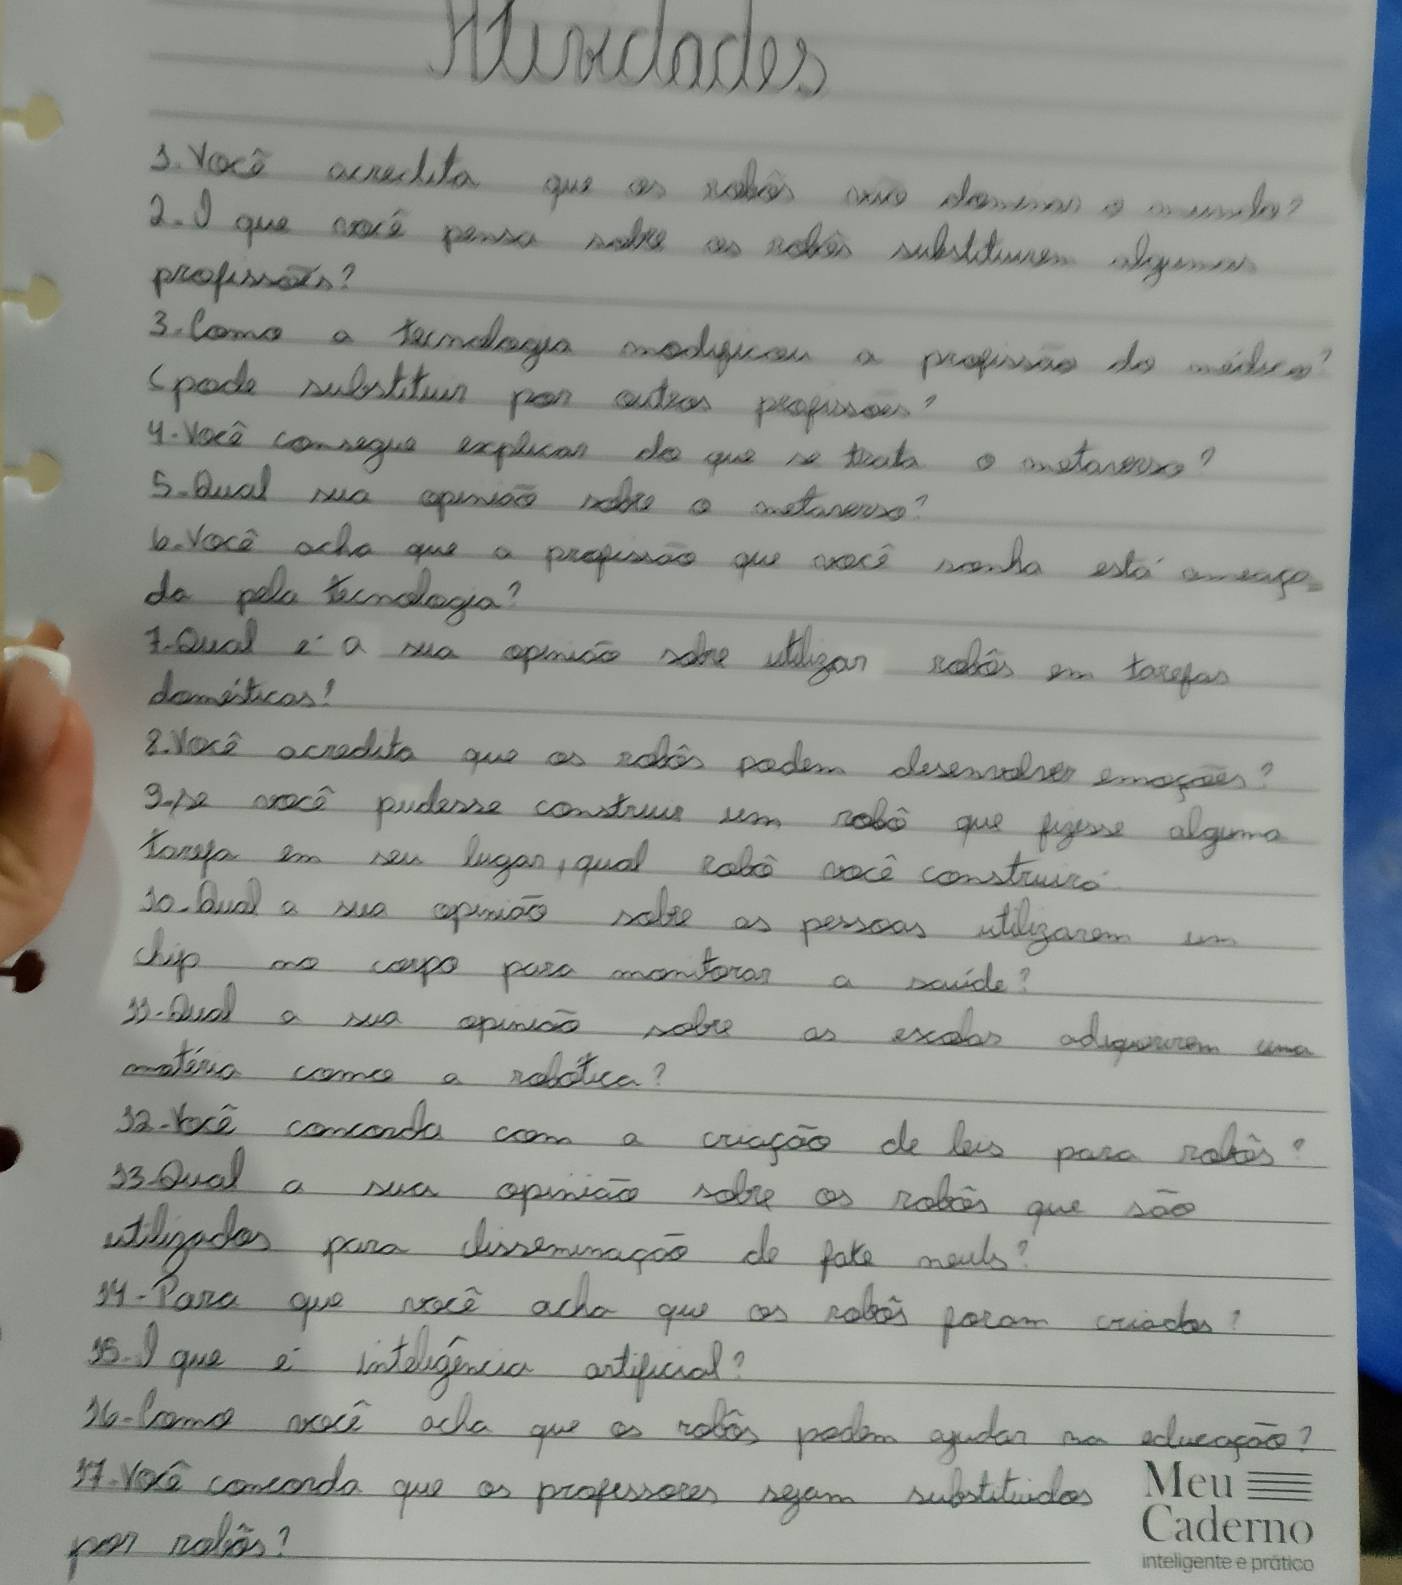 Atividades
1. Você acredita que os robôs vão dominar o mundo?
2. O que você pensa sobre os robôs substituirem algumas
profissões?
3. Como a tecnologia modificou a profissão do médico?
(pode substituir por outras profissões?
4. Você consegue explicar do que se trata o metaverso?
5. Qual sua opinião sobre o metaverso?
6. Você acha que a profissão que você sonha está ameaça-
da pela tecnologia?
7. Qual é a sua opinião sobre utilizar robôs em tarefas
domésticas?
8. Você acredita que os robôs podem desenvolver emoções?
9. se você pudesse construir um robô que fizesse alguma
tarefa em seu lugar, qual robô você construirá
10. Qual a sua opinião sobre as pessoas utilizarem um
chip no corpo para monitorar a saúde?
11. Qual a sua opinião sobre as escolas adiquerirem uma
matéria como a robótica?
12. Você concorda com a criação de leis para robôs?
13. Qual a sua opinião sobre os robôs que são
utilizados para disseminação de fake neuls?
14 - Para que você acha que os robôs foram criados?
15. O que é inteligência artificial?
16 - Como você acha que os robôs podem ajudar na educação?
17. Você concorda que os professores sejam substituidos
por robôs?
Meu
Caderno
inteligente e prático